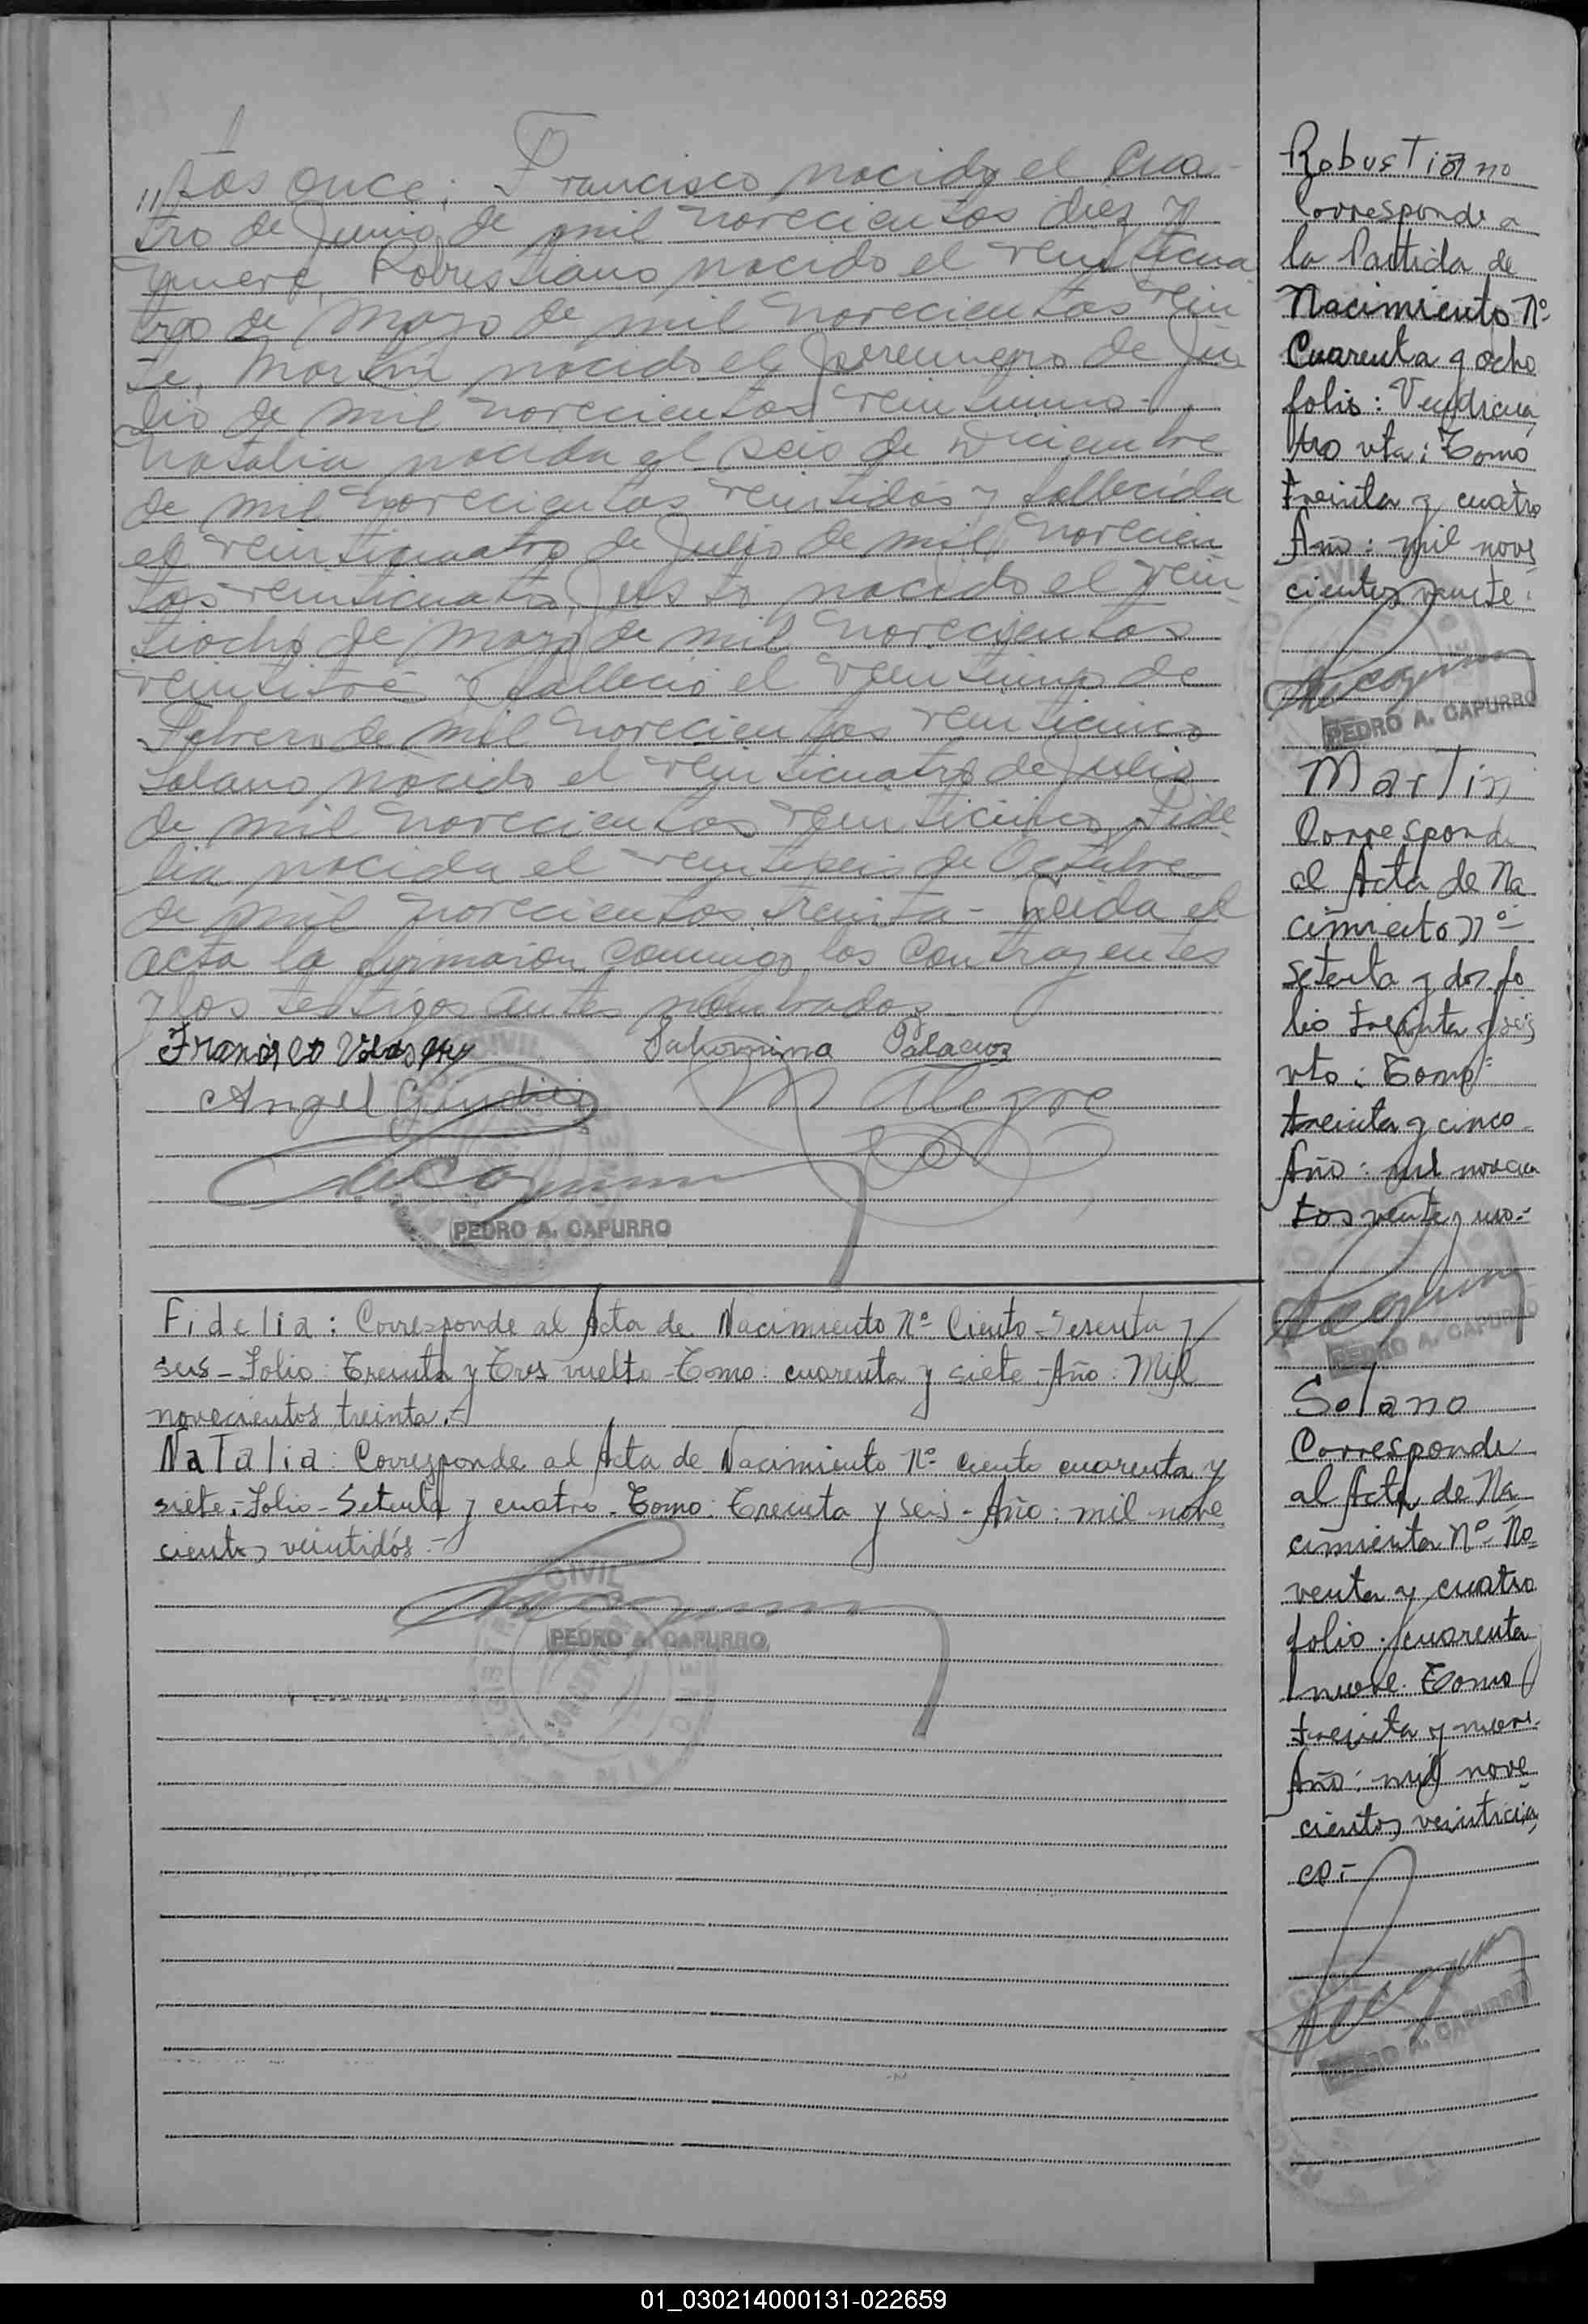 "tos once; Francisco nacido el cua-
tro de Junio de mil novecientos diez y
nueve, Robustiano nacido el veinticua
tro de Mayo de mil novecientos vein
te, Martin nacido el primero de Ju
lio de mil novecientos veintiuno.
Natalia nacida el seis de Diciembre
de mil novecientos veintidós y fallecida
el veinticuatro de Julio de mil novecien
tos veinticuatro, Justo nacido el vein
tiocho de Mayo de mil novecientos
veintitrés y falleció el veintiuno de
Febrero de mil novecientos veinticinco
Solano nacido el veinticuatro de Julio
de mil novecientos veinticinco, Fide
lia nacida el veintiseis de Octubre
de mil novecientos treinta - Leida el
acta la firmaron conmigo los contrayentes
y los testigos antes nombrados
Francisco
Palacios
Angel
M Alegre
PEDRO A. CAPURRO
Fidelia: Corresponde al Acta de Nacimiento Nº Ciento Sesenta y
seis - Folio: Treinta y Tres vuelto - Tomo: cuarenta y siete - Año: Mil
novecientos treinta.-
Natalia: Corresponde al Acta de Nacimiento Nº ciento cuarenta y
siete - Folio - Setenta y cuatro - Tomo: Treinta y seis - Año: mil nove
cientos veintidós.-
CIVIL
PEDRO A. CAPURRO
Robustiano
Corresponde a
la Partida de
Nacimiento Nº
Cuarenta y ocho
folio: Veinticua
tro vta: Tomo
treinta y cuatro
Año: mil nove
cientos veinte.
PEDRO A. CAPURRO
Martin
Corresponde
al Acta de Na
cimiento Nº
Setenta y dos fo
lio treinta y seis
vto: Tomo:
treinta y cinco
Año: mil novecien
tos veinte y uno.-
PEDRO A. CAPURRO
Solano
Corresponde
al Acta de Na
cimiento Nº No
venta y cuatro
folio: cuarenta
nueve. Tomo
treinta y nueve.
Año: mil nove
cientos veinticin
co.-
PEDRO A. CAPURRO
01_030214000131-022659